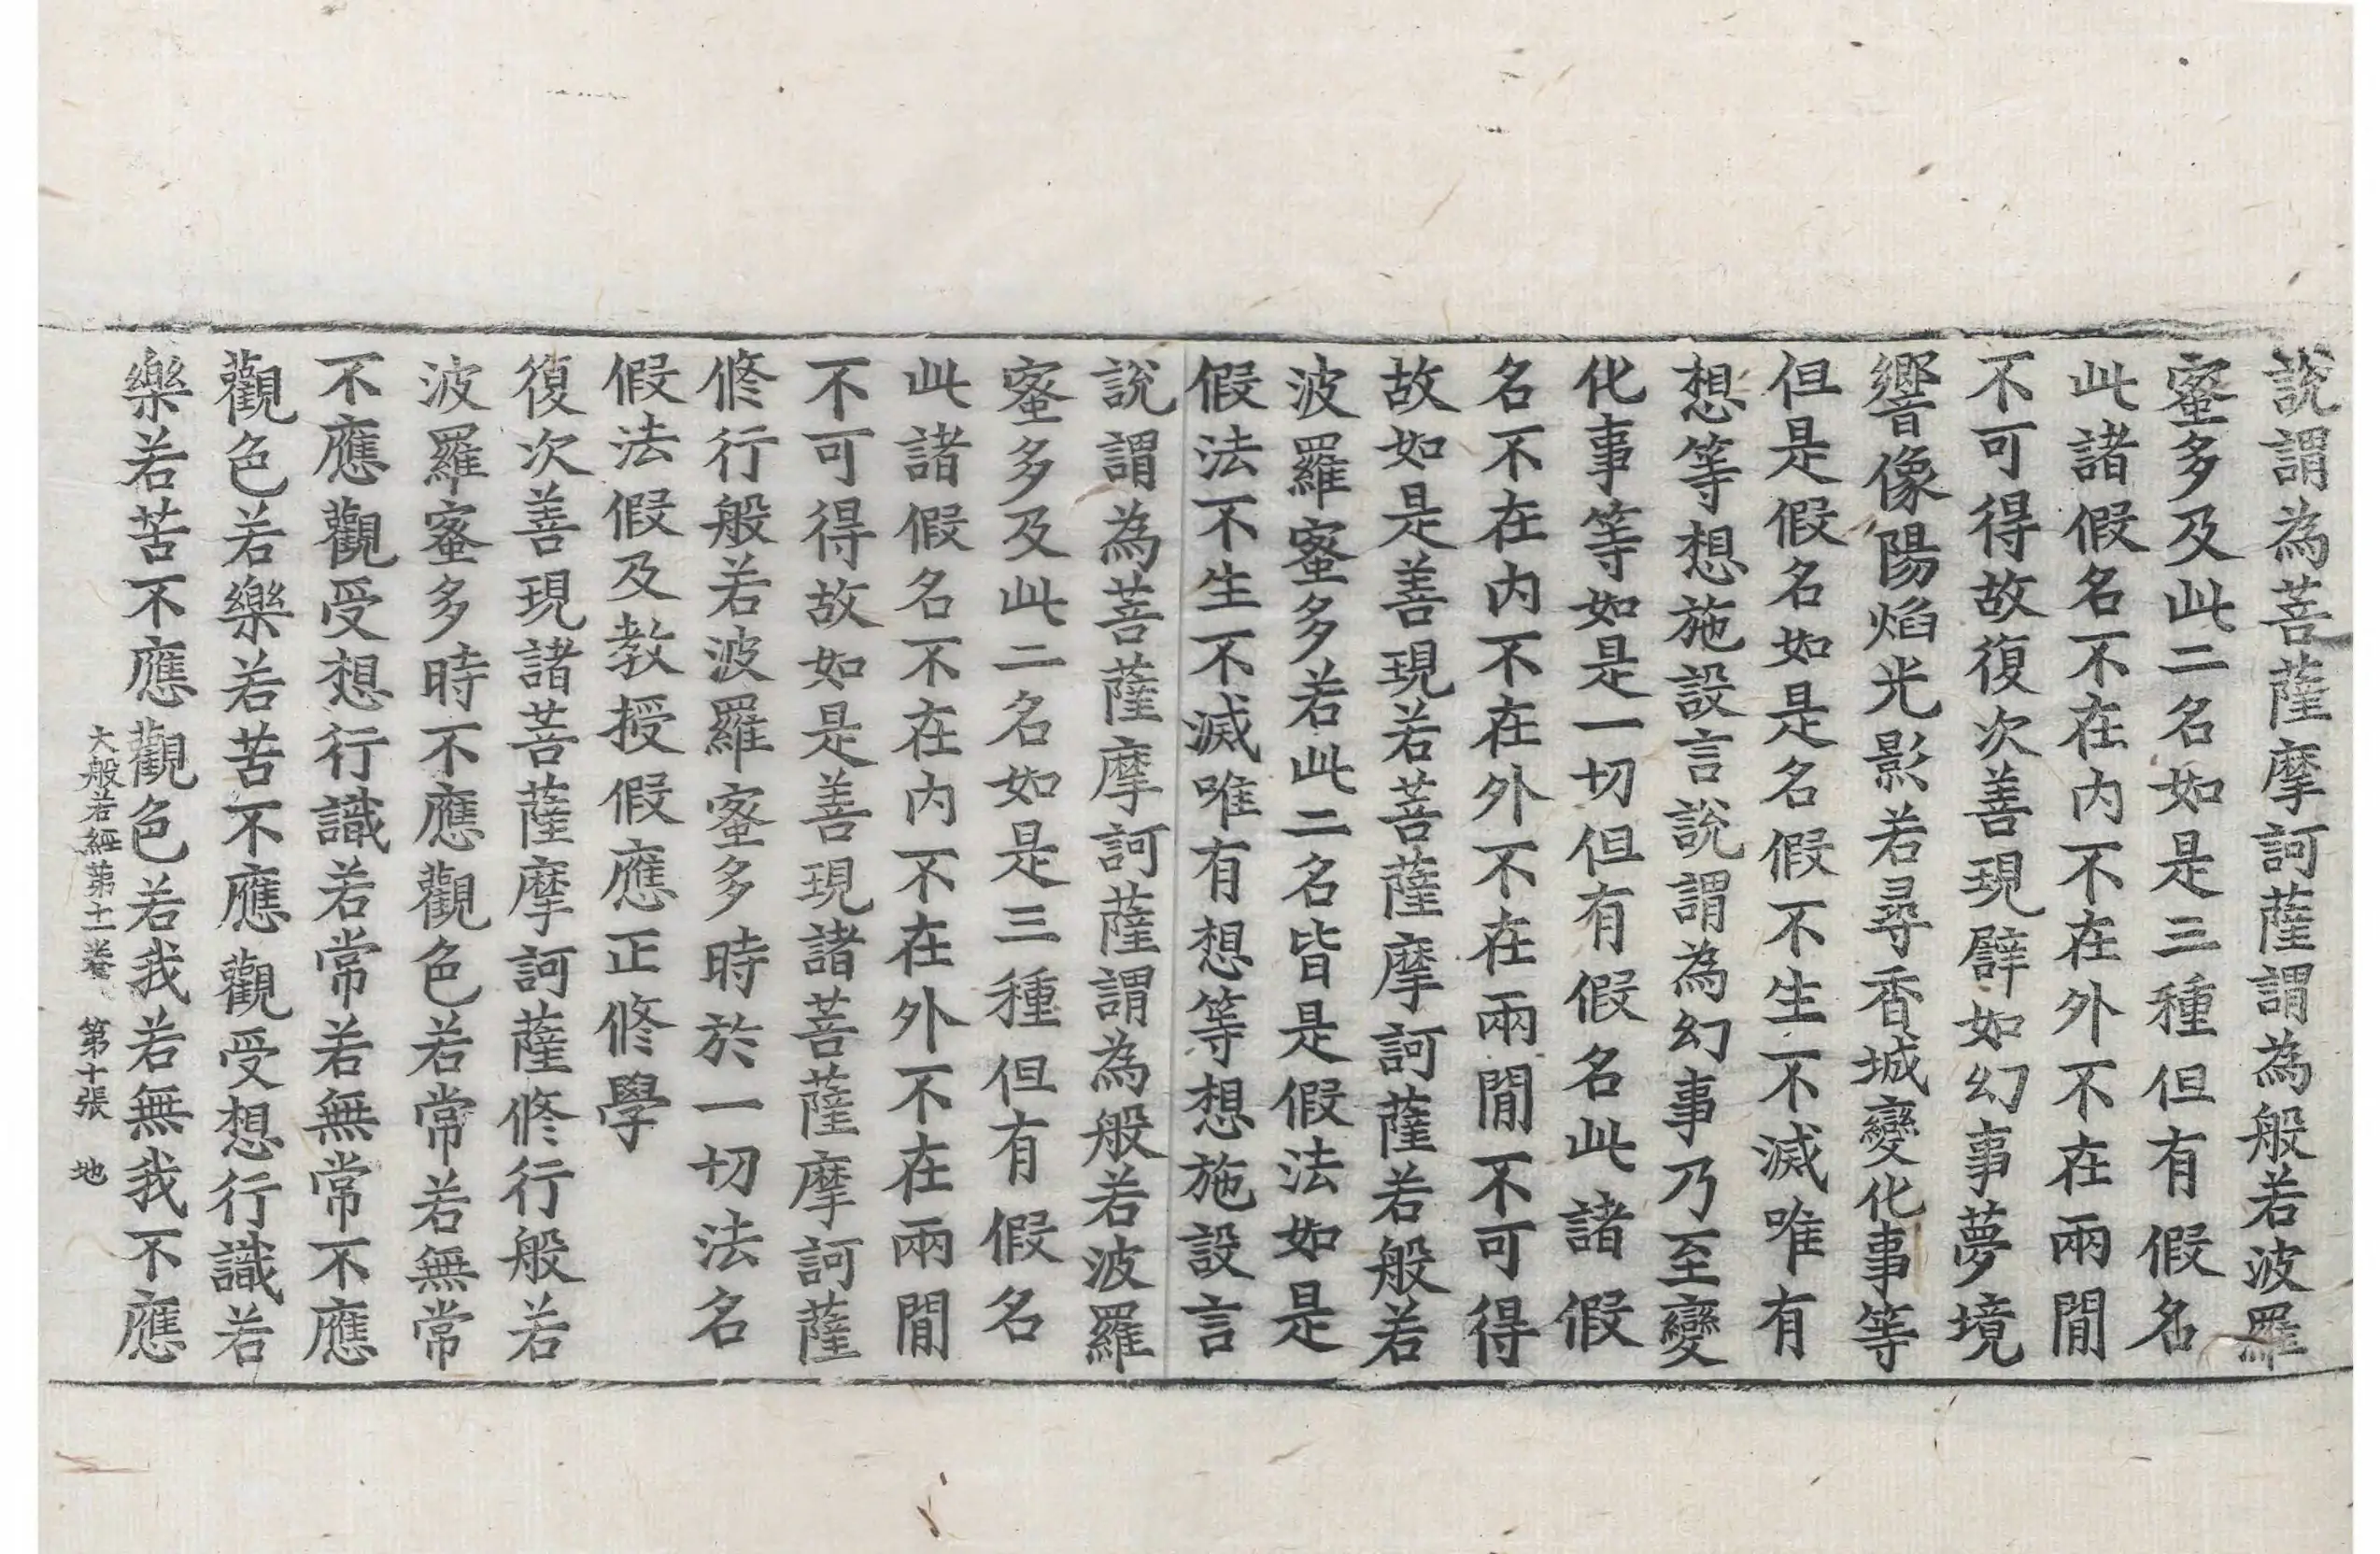 說謂為菩薩摩訶薩謂為般若波羅
蜜多及此二名如是三種但有假名
此諸假名不在内不在外不在兩閒
不可得故復次善現譬如幻事夢境
響像陽焰光影若尋香城變化事等
但是假名如是名假不生不滅唯有
想等想施設言說謂為幻事乃至變
化事等如是一切但有假名此諸假
名不在内不在外不在兩閒不可得
故如是善現若菩薩摩訶薩若般若
波羅蜜多若此二名皆是假法如是
假法不生不滅唯有想等想施設言
說謂為菩薩摩訶薩謂為般若波羅
蜜多及此二名如是三種但有假名
此諸假名不在内不在外不在兩閒
不可得故如是善現諸菩薩摩訶薩
修行般若波羅蜜多時於一切法名
假法假及教授假應正修學
復次善現諸菩薩摩訶薩修行般若
波羅蜜多時不應觀色若常若無常
不應觀受想行識若常若無常不應
觀色若樂若苦不應觀受想行識若
樂若苦不應觀色若我若無我不應
大般若經第十一卷 第十張 地